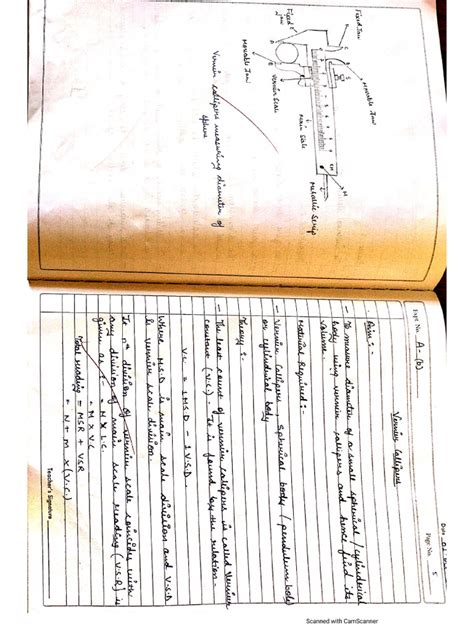 Fixed Jaw
Movable Jaw
Metallic Strip
Main Scale
Vernier Scale
Fixed
Movable Jaw
Vernier callipers measuring diameter of
sphere
Expt. No. A-(b)
Date
Page No. 5
Vernier Callipers
Aim :-
- To measure diameter of a small spherical / cylindrical
body using vernier callipers and hence find its
volume.
Material Required :-
- Vernier Callipers, Spherical body / pendulum bob
or cylindrical body
Theory :-
- The least count of vernier callipers is called Vernier
constant (V.C.). It is found by the relation.
V.C = 1 M.S.D - 1 V.S.D
Where M.S.D is main scale division and V.S.D
is vernier scale division.
If nth division of vernier scale coincides with
any division of main scale reading (V.S.R) is
given as
= M x L.C.
= M x V.C
Total reading = MSR + VSR
= N + m x (V.C.)
Teacher's Signature
Scanned with CamScanner